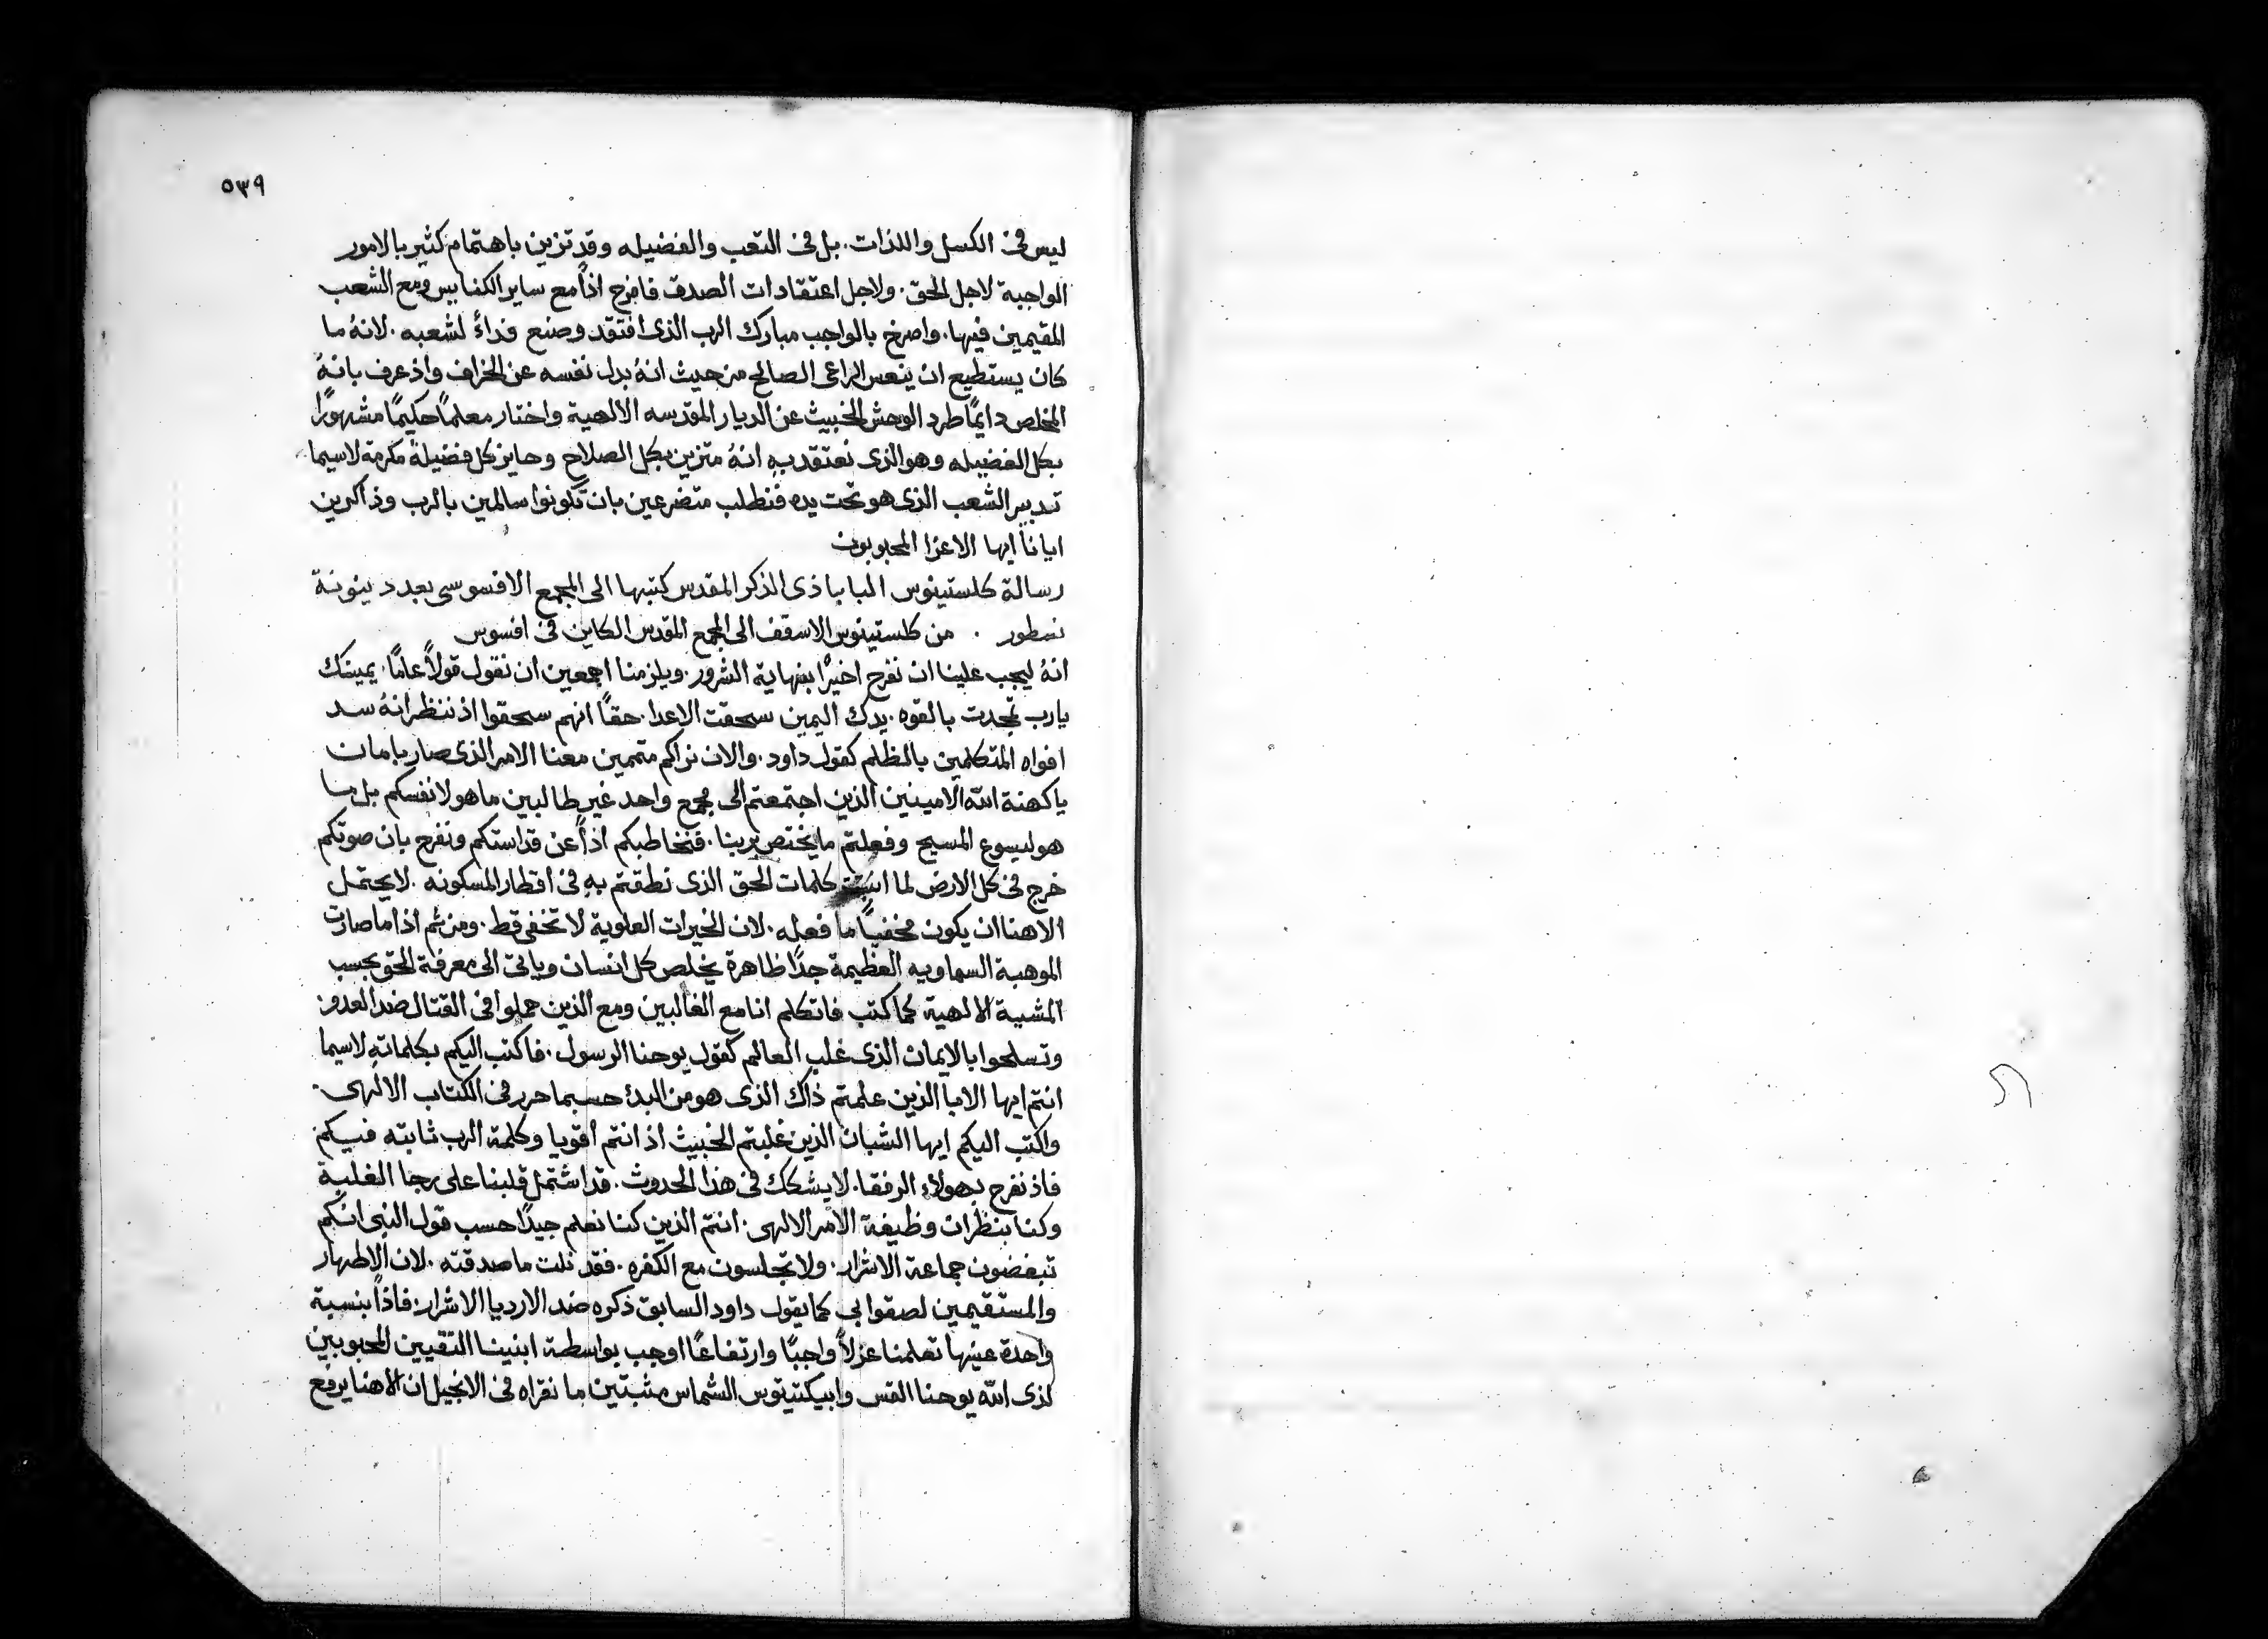 ٥٣٩
ليس فى الكسل واللذات. بل فى التعب والفضيله وقد تزين باهتمام كثير بالامور
الواجبة لاجل الحق. ولاجل اعتقادات الصدق فافرح اذاً مع ساير الكنايس ومع الشعب
المقيمين فيها. واصرخ بالواجب مبارك الرب الذى افتقد وصنع فداءً لشعبه. لانهُ ما
كان يستطيع ان ينعس الراعى الصالح من حيث انهُ بدل نفسه عن الخراف واذ عرف بانهُ
المخلص دايمًا طرد الوحش الخبيث عن الديار المقدسه الالهية واختار معلماً حكيمًا مشهورًا
بكل الفضيله وهو الذى نعتقد بهِ انهُ متزين بكل الصلاح وحايز كل فضيلة مكرمة لاسيما
تدبير الشعب الذى هو تحت يده فنطلب متضرعين بان تكونوا سالمين بالرب وذاكرين
ايانا ايها الاعزا المحبوبون
رسالة كلستينوس البابا ذى الذكر المقدس كتبها الى المجمع الافسوسى بعد دينونة
نسطور . من كلستينوس الاسقف الى المجمع المقدس الكاين فى افسوس
انهُ ليجب علينا ان نفرح اخيرًا بنهاية الشرور. ويلزمنا اجمعين ان نقول قولاً عامًا. يمينك
يارب تمجدت بالقوه. يدك اليمين سحقت الاعدا. حقاً انهم سحقوا اذ ننظر انهُ سد
افواه المتكلمين بالظلم كقول داود. والان نراكم متممين معنا الامر الذى صار بامان
ياكهنة الله الامينين الذين اجتمعتم الى مجمع واحد غير طالبين ماهو لانفسكم بل ما
هو ليسوع المسيح وفعلتم مايختص بربنا. فنخاطبكم اذاً عن قداستكم ونفرح بان صوتكم
خرج فى كل الارض لما كلمات الحق الذى نطقتم بهِ فى اقطار المسكونه. لايحتمل
الاهنا ان يكون مخفياً ما فعله. لان الخيرات العلوية لا تخفى قط. ومن ثم اذا ما صارت
الموهبة السماويه العظيمة جدًا ظاهرة يخلص كل انسان وياتى الى معرفة الحق بحسب
المشية الالهية كما كتب فاتكلم انا مع الغالبين ومع الذين حملوا فى القتال ضد العدو
وتسلحوا بالايمان الذى غلب العالم كقول يوحنا الرسول. فاكتب اليكم بكلماتهِ لاسيما
انتم ايها الابا الذين علمتم ذاك الذى هو من البدء حسبما حرر فى الكتاب الالهى.
واكتب اليكم ايها الشبان الذين غلبتم الخبيث اذ انتم اقويا وكلمة الرب ثابته فيكم
فاذ نفرح بهولاء الرفقا. لايشكك فى هذا الحدوث. قد اشتمل قلبنا على رجا الغلبة
وكنا بنظرات وظيفة الامر الالهى. انتم الذين كنا نعلم جيدًا حسب قول النبى انكم
تبغضون جماعة الاشرار. ولا تجلسون مع الكفره. فقد نلت ما صدقته. لان الاطهار
والمستقيمين لصقوا بى كما يقول داود السابق ذكره ضد الارديا الاشرار: فاذاً بنسبة
واحدة عينها تعلمنا عزلاً واجبًا وارتفاعًا اوجب بواسطة ابنينا التقيين المحبوبين
لذى الله يوحنا القس وابيكتيتوس الشماس مثبتين ما نقراه فى الانجيل ان الاهنا يرفع